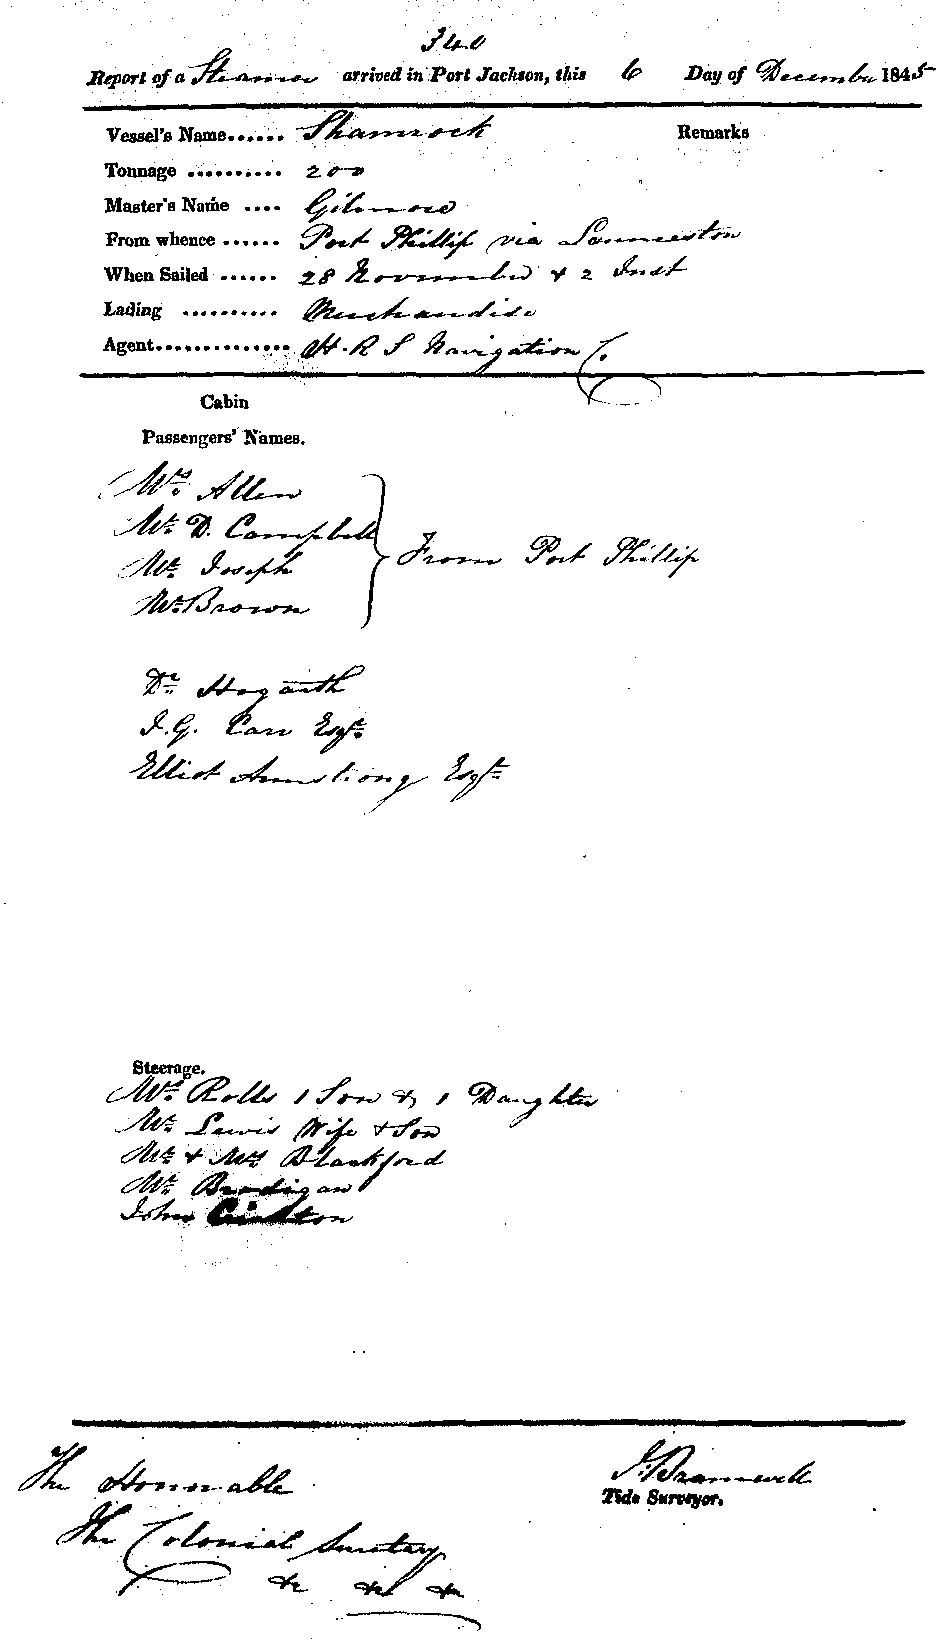 340
Report of a Steamer arrived in Port Jackson, this 6 Day of December 1845
Vessel's Name...... Shamrock Remarks
Tonnage .......... 200
Master's Name .... Gilmore
From whence ...... Port Phillip via Launceston
When Sailed ...... 28 November & 2 Inst
Lading .......... Merchandise
Agent.............. H. R S Navigation Co.
Cabin
Passengers' Names.
Mrs. Allen
Mr. D. Campbell
Mr. Joseph
From Port Phillip
Mr. Brown
Dr. Hogarth
J. G. Carr Esqr.
Elliot Armstrong Esqr.
Steerage.
Mrs. Rolls 1 Son & 1 Daughter
Mr. Lewis Wife & Son
Mr. & Mrs Blackford
Mr. Brodigan
John
The Honorable
The Colonial Secretary
&c &c &c
J. Bramwell
Tide Surveyor.